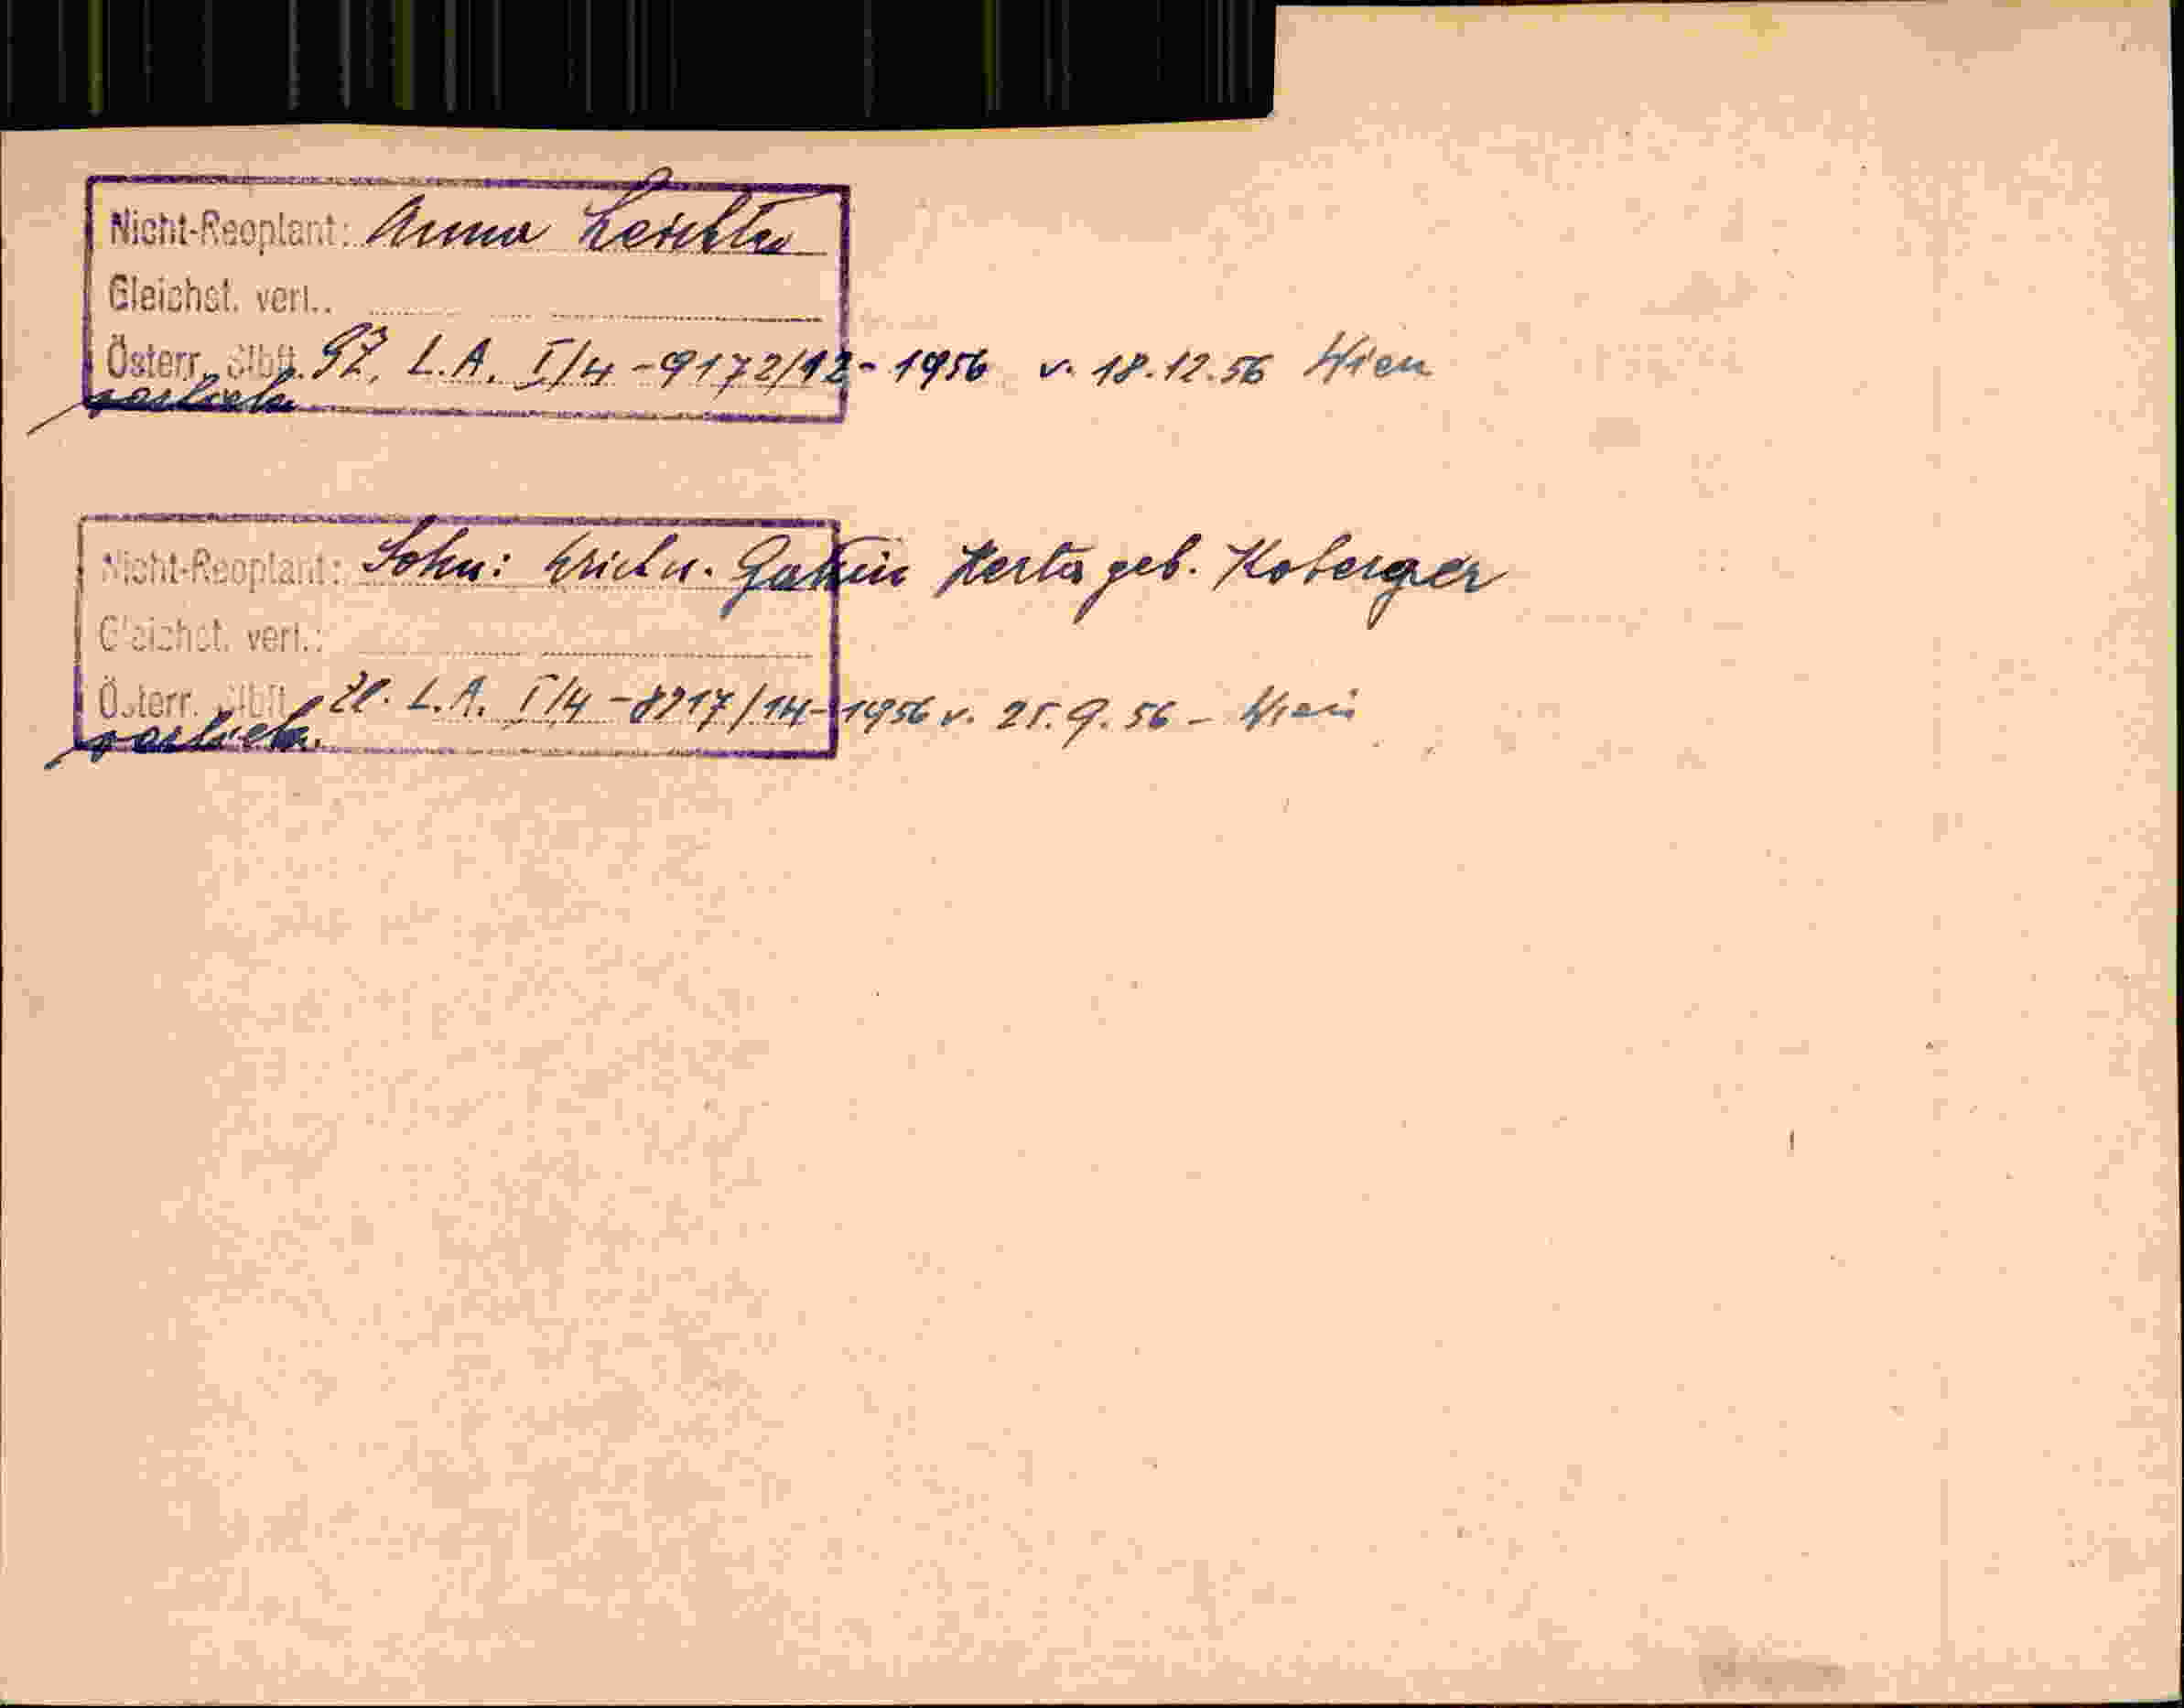 Nicht-Reoplant: Anna
Gleichst. verl.:
Österr. Stbft. GZ. L.A. I/4 - 9172/12 - 1956 v. 18.12.56 Wien
Nicht-Reoplant: Sohn: Erich u. Gattin Herta geb. Koberger
Gleichst. verl.:
Österr. Stbft. Zl. L.A. I/4 - 8217/14 - 1956 v. 25.9.56 - Wien